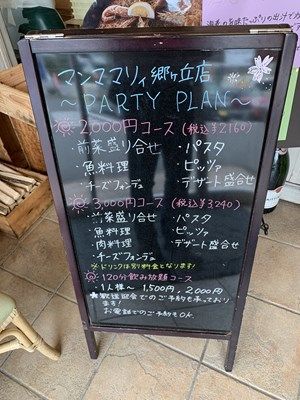 マンマ マリィ 郷ヶ丘店
～PARTY PLAN～
2,000円コース (税込¥2160)
・前菜盛り合せ ・パスタ
・魚料理 ・ピッツァ
・チーズフォンデュ ・デザート盛合せ
3,000円コース (税込¥3240)
・前菜盛り合せ ・パスタ
・魚料理 ・ピッツァ
・肉料理 ・デザート盛合せ
・チーズフォンデュ
※ドリンクは別料金となります!
120分飲み放題コース
・1人様～ 1,500円, 2,000円
★歓送迎会でのご予約も承っております!
お電話でのご予約もOK.